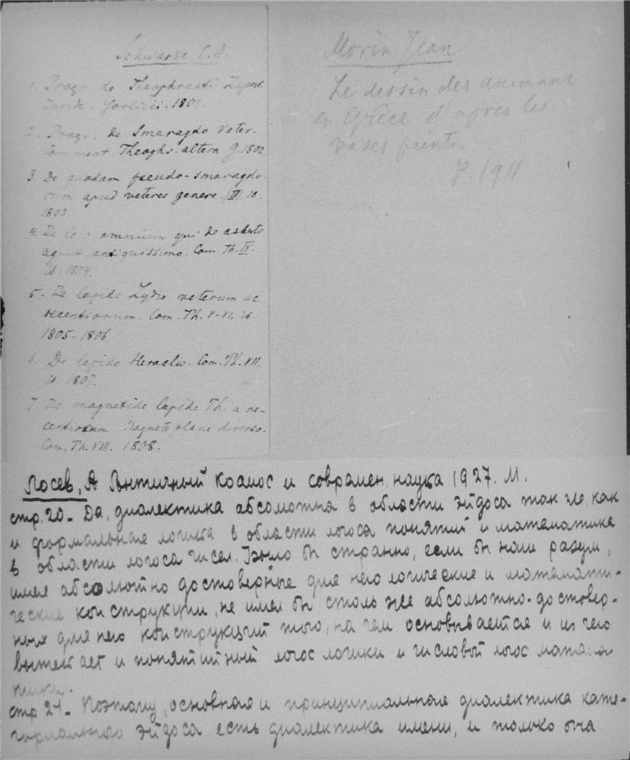 Schwarze C. A.
1. Progr. de Theophrasti
Gorlicii. 1801.
2. Progr. de Smaragdo Veter.
Comment. Theophr. altera G. 1802
3. De quodam pseudo-smaragdo
rum apud veteres genere. III ib.
1803
4. De loco omnium qui de asbesto
agunt, antiquissimo. Com. Th. IV.
ib. 1804.
5. De lapide Lydio veterum ac
recentiorum. Com. Th. V-VI. ib.
1805-1806
6. De lapide Heracleo. Com. Th. VII.
ib. 1807.
7. De magnetide lapide Th. a re-
centiorum Magnete plane diverso.
Com. Th. VIII. 1808.
Morin Jean
Le dessin des animaux
en Grèce d'après les
vases peints.
P. 1911
Лосев, А Античный космос и современ. наука 1927. М.
стр. 20 - Да, диалектика абсолютна в области эйдоса так же, как
и формальная логика в области логоса понятий и математика
в области логоса чисел. Было бы странно, если бы наш разум,
имея абсолютно достоверные для него логические и математи-
ческие конструкции, не имел бы столь же абсолютно-достовер-
ных для него конструкций того, на чем основывается и из чего
вытекает и понятийный логос логики и числовой логос матема
тики.
стр 21 - Поэтому, основная и принципиальная диалектика кате-
гориального эйдоса есть диалектика имени, и только она